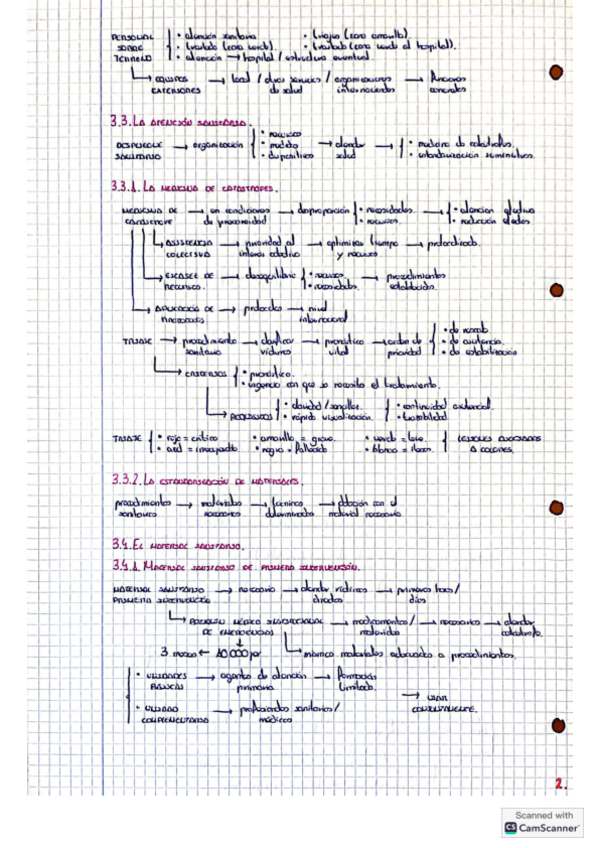 PERSONAL SOBRE TERRENO { • atención sanitaria • triajes (zona amarilla).
• traslado (zona verde) • traslado (zona verde al hospital).
• atención → hospital / estructura eventual.
↳ EQUIPOS EXTERIORES → local / otros servicios de salud / organizaciones internacionales →
3.3. LA ATENCIÓN SANITARIA.
DESPLIEGUE SANITARIO → organización { • recursos • modelo • dispositivos → atender salud → { • medicina de catástrofes. • estandarización suministros.
3.3.1. LA MEDICINA DE CATÁSTROFES.
MEDICINA DE CATÁSTROFE → en condiciones de precariedad → desproporción { • necesidades. • recursos. → { • atención efectiva • reducción efectos
↳ ASISTENCIA COLECTIVA → prioridad al interés colectivo → optimiza tiempo y recursos → protocolizada.
↳ ESCASEZ DE RECURSOS. → desequilibrio { • recursos • necesidades. → procedimientos establecidos.
↳ APLICACIÓN DE → protocolos → nivel internacional
TRIAJE → procedimiento sanitario → clasificar víctimas → pronóstico vital → orden de prioridad { • de rescate • de asistencia • de estabilización
↳ CRITERIOS { • pronóstico. • urgencia con que se necesita el tratamiento.
↳ REQUISITOS { • claridad / sencillez. • rápida visualización. • continuidad asistencial. • trazabilidad.
TRIAJE { • rojo = crítico • amarillo = grave. • verde = leve. • azul = inaceptado • negro = fallecido • blanco = ilesos. } LESIONES ASOCIADAS A COLORES.
3.3.2. LA ESTANDARIZACIÓN DE MATERIALES.
procedimientos sanitarios → materiales necesarios → técnicas determinadas → dotación con el material necesario
3.4. EL MATERIAL SANITARIO.
3.4.1. MATERIAL SANITARIO DE PRIMERA INTERVENCIÓN.
MATERIAL SANITARIO PRIMERA INTERVENCIÓN → necesario → atender víctimas directas → primeras horas / días
↳ BOTIQUÍN MÉDICO INTERNACIONAL DE EMERGENCIAS → medicamentos / materiales → necesarios → atender catástrofe.
3 meses ← 10 000 per ↳ mismos materiales adecuados a procedimientos.
{ • UNIDADES BÁSICAS → agentes de atención primaria → formación limitada.
• UNIDAD COMPLEMENTARIA → profesionales sanitarios / médicos → USAR CONJUNTAMENTE.
2.
Scanned with
CS CamScanner